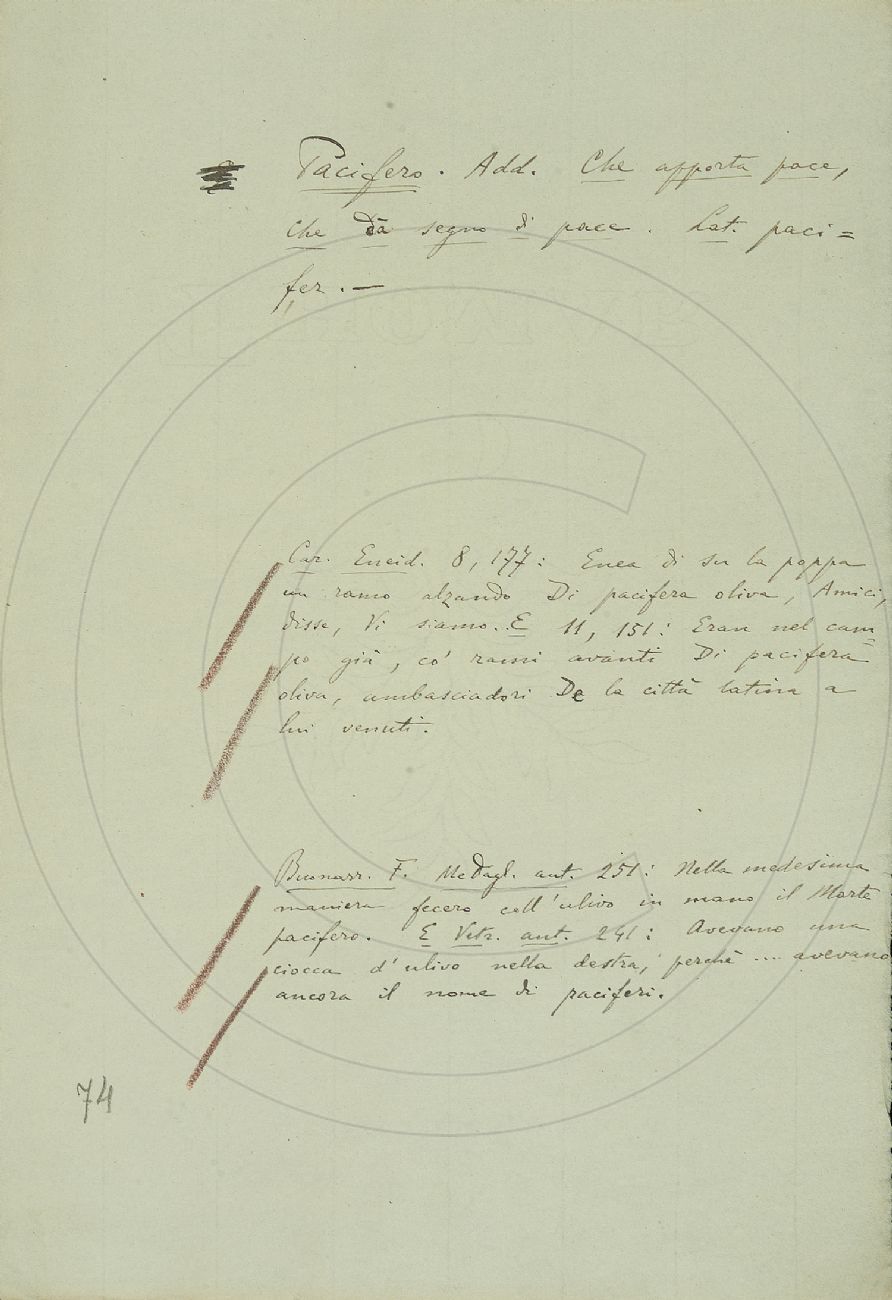 Pacifero. Add. Che apporta pace,
che dà segno di pace. Lat. paci=
fer. —
Car. Eneid. 8, 177: Enea di su la poppa
un ramo alzando Di pacifera oliva, Amici,
disse, Vi siamo. E 11, 151: Eran nel cam=
po già, co' rami avanti Di pacifera
oliva, ambasciadori De la città latina a
lui venuti.
Buonarr. F. Medagl. ant. 251: Nella medesima
maniera fecero coll'ulivo in mano il Marte
pacifero. E Vetr. ant. 241: Avevano una
ciocca d'ulivo nella destra, perchè ... avevano
ancora il nome di paciferi.
74